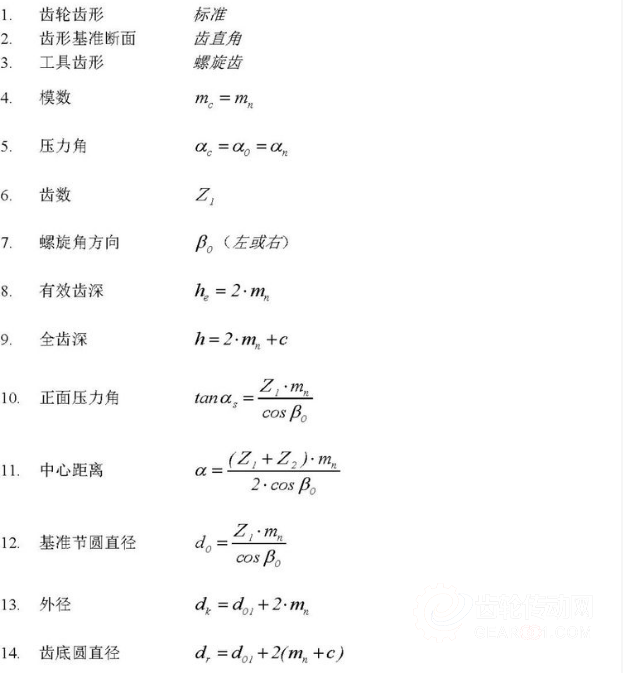 1. 齿轮齿形 标准
2. 齿形基准断面 齿直角
3. 工具齿形 螺旋齿
4. 模数 m_c = m_n
5. 压力角 α_c = α_0 = α_n
6. 齿数 Z_1
7. 螺旋角方向 β_0（左或右）
8. 有效齿深 h_e = 2·m_n
9. 全齿深 h = 2·m_n + c
10. 正面压力角 tanα_s = Z_1·m_n / cos β_0
11. 中心距离 α = (Z_1 + Z_2)·m_n / 2·cos β_0
12. 基准节圆直径 d_0 = Z_1·m_n / cos β_0
13. 外径 d_k = d_01 + 2·m_n
14. 齿底圆直径 d_r = d_01 + 2(m_n + c)
齿轮传动网